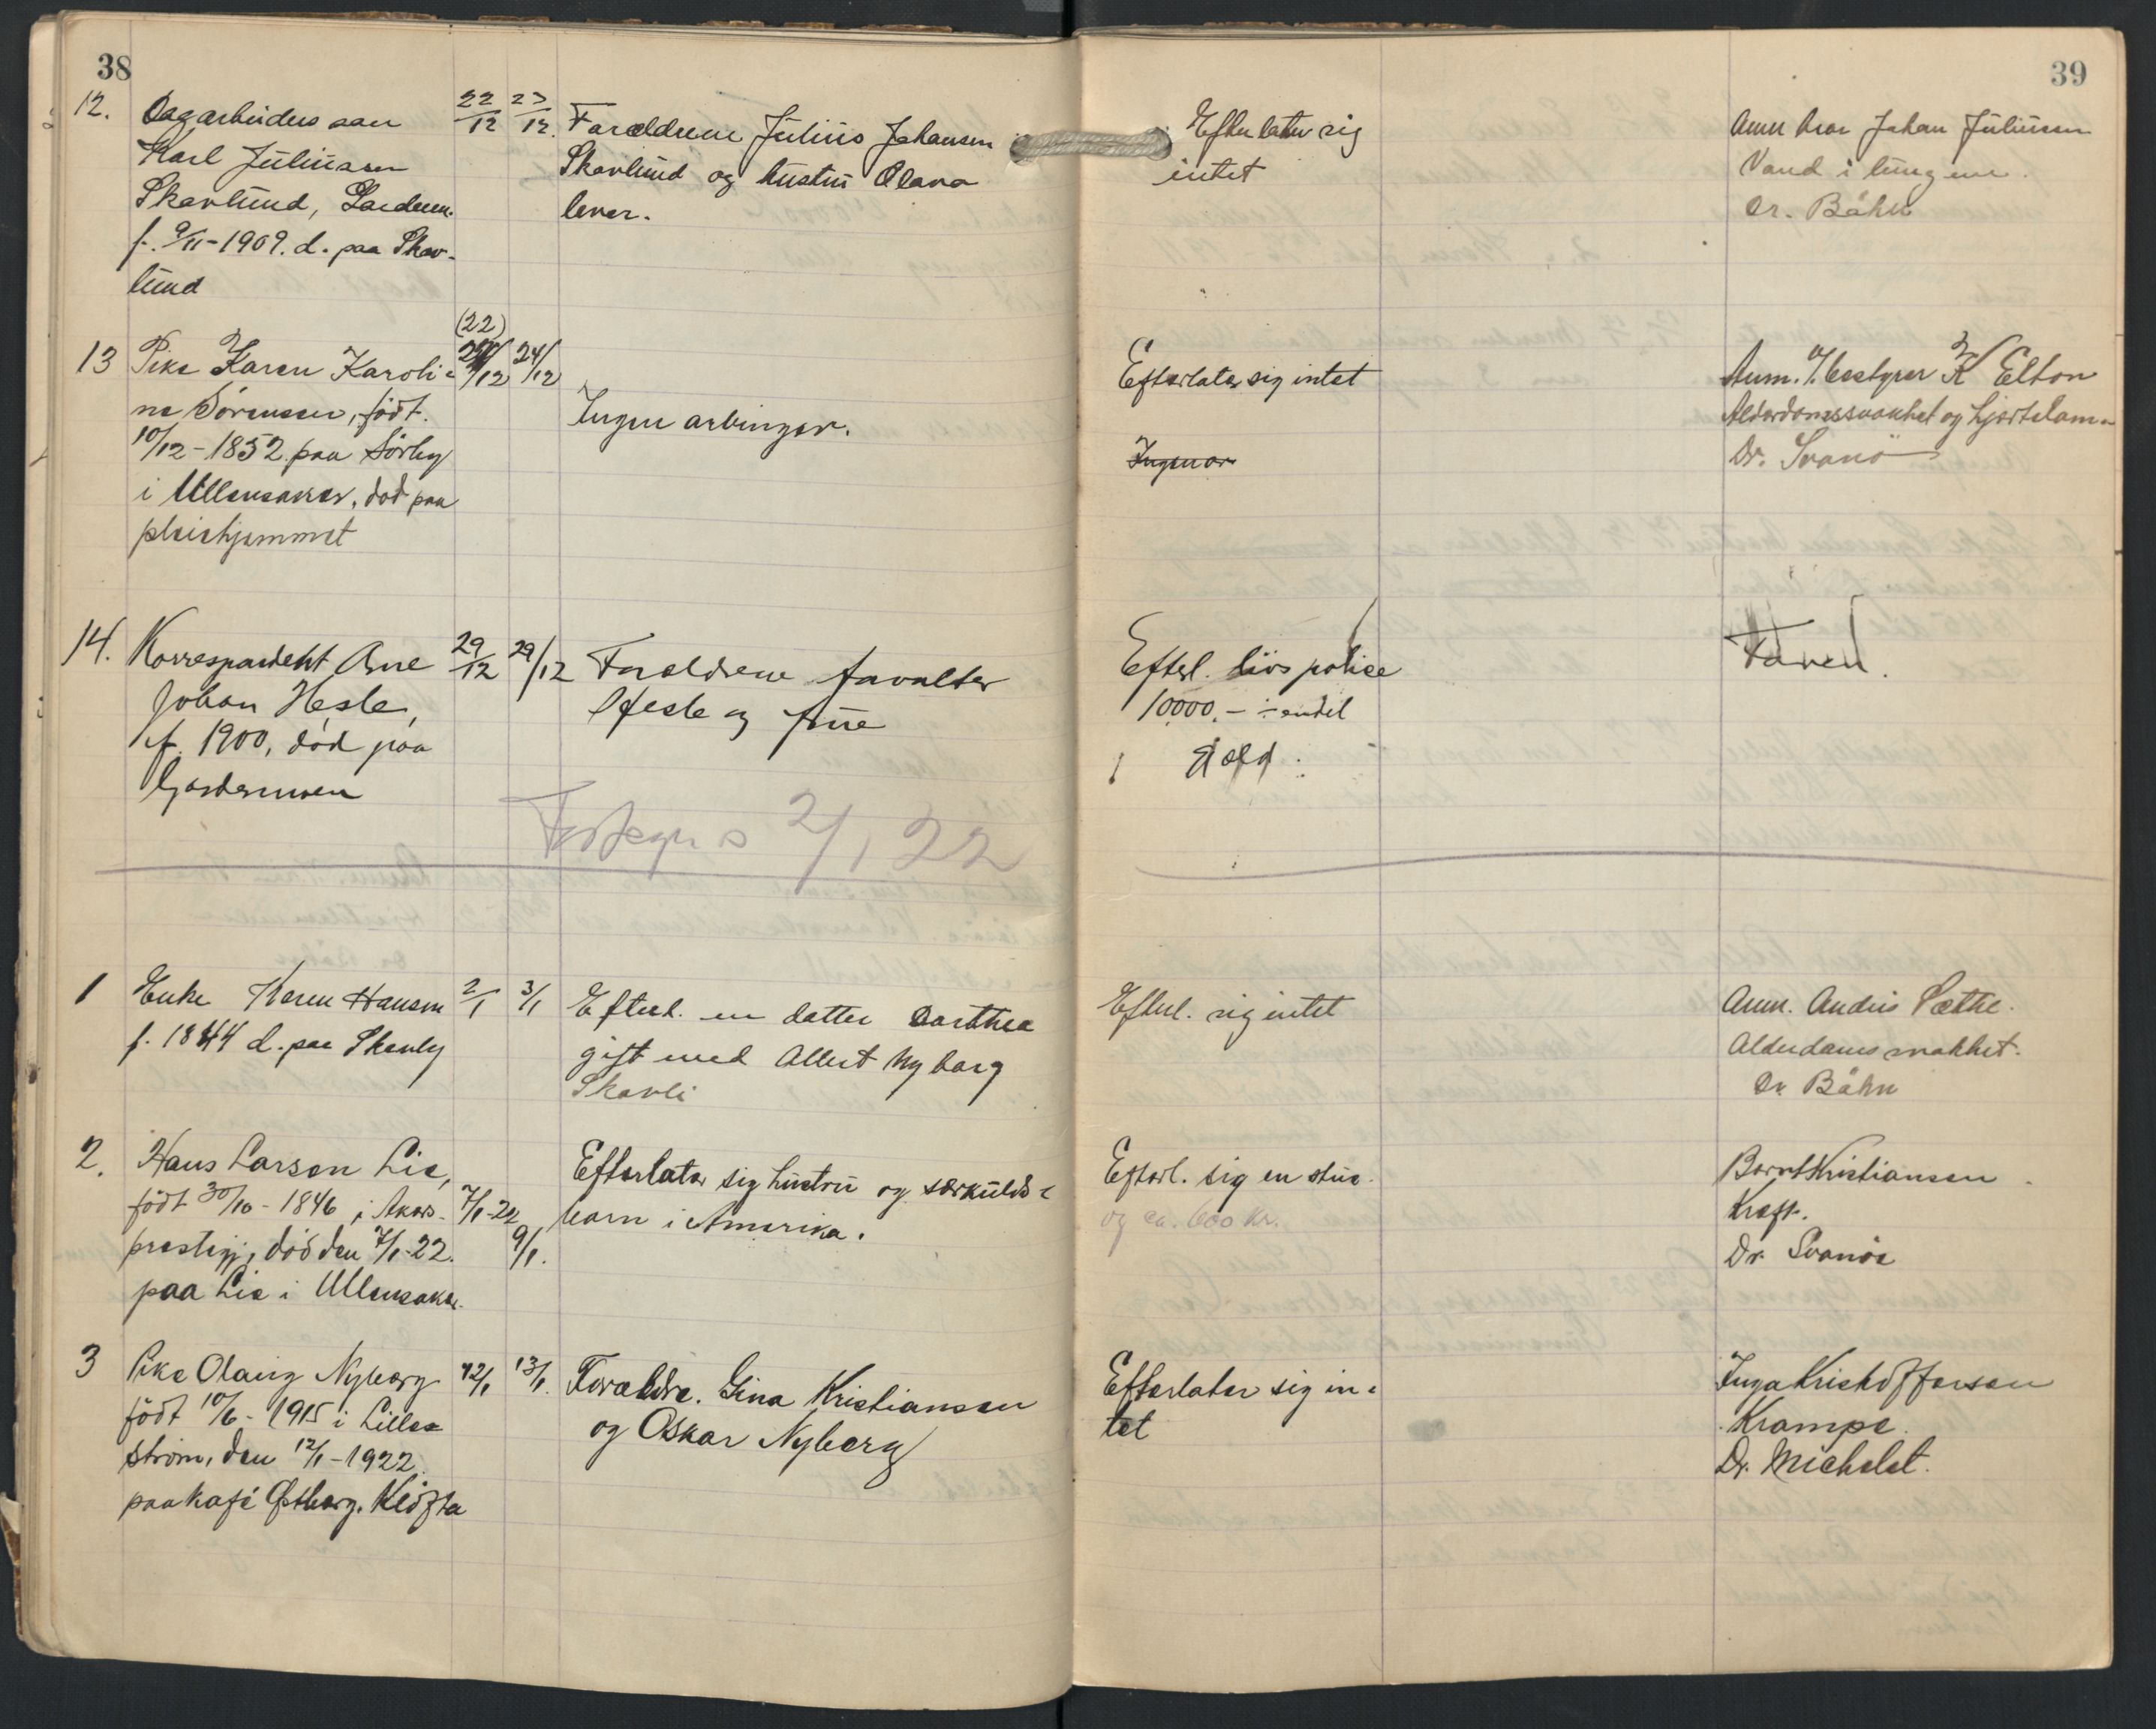 38
12. Dagarbeiders søn 22/12 23/12. Forældrene Julius Johansen
Karl Juliussen Skavlund og hustru Olava
Skavlund, Garderm. lever.
f. 9/11-1909. d. paa Skav-
lund
(22)
13 Pike Karen Karoli- /12 24/12
ne Sørensen, født. Ingen arvinger.
10/12-1852 paa Sørby
i Ullensaker, død paa
pleiehjemmet
14. Korrespondent Arne 29/12 29/12 Forældrene forvalter
Johan Hesle, Hesle og frue
f. 1900, død paa
Gardermoen
2/1 22
1 Enke Karen Hansen 2/1 3/1 Efterl. en datter Dorthea
f. 1844 d. paa Skauby gift med Albert Nyborg
Skovli
2. Hans Larsen Lie, Efterlater sig hustru og særkulds-
født 30/10-1846 i Akers- 7/1-22 barn i Amerika.
prestegj, død den 7/1-22. 9/1.
paa Lie i Ullensaker.
3 Pike Olaug Nyborg 12/1 13/1. Forældre. Gina Kristiansen
født 10/6-1915 i Lilles- og Oskar Nyborg
strøm, den 12/1-1922.
paa kafé Østborg, Kløfta
39
Efterlater sig Anm Johan Juliussen
intet Vand i lungene.
Dr. Båhn
Efterlater sig intet Anm. K Elton
Alderdomssvakhet og hjertelam-
Ingen ar Dr. Svanø
Efterl. livspolise Faren.
10000.- ÷ endel
gjæld.
Efterl. sig intet Anm. Andris Sæthe.
Alderdomssvakhet.
Dr. Båhn
Efterl. sig en stue Bernt Kristiansen
og ca. 600 kr. Kræft.
Dr. Svanøe
Efterlater sig in- Inga Kristoffersen
tet Krampe.
Dr. Michelet.